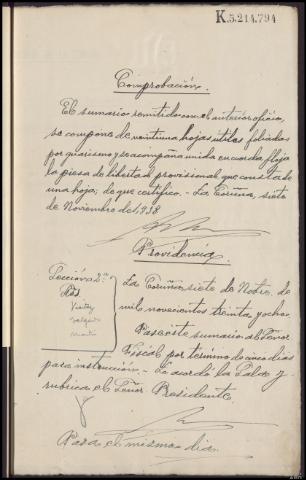 K.5.214.794
Comprobación.
El sumario remitido con el anterior oficio,
se compone de veintiuna hojas útiles foliadas
por guarismo y se acompaña unida en cuerda floja
la pieza de libertad provisional que consta de
una hoja; de que certifico. - La Coruña, siete
de Noviembre de 1938
Providencia
Sección 2ª
La Coruña, siete de Novbre. de
mil novecientos treinta y ocho.
Pase este sumario al Señor
Fiscal por termino de cinco dias
para instrucción. - Lo acordó la Sala y
rubrica el Señor Presidente.
Pasa el mismo dia.